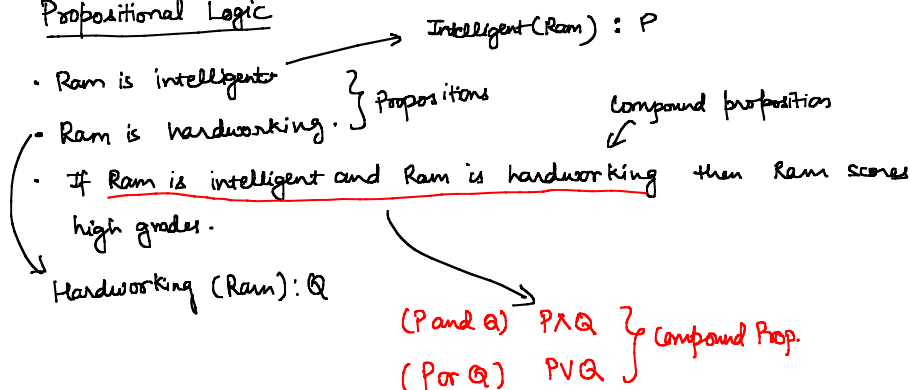 Propositional Logic
Intelligent (Ram) : P
• Ram is intelligent.
• Ram is hardworking. } Propositions
compound proposition
• If Ram is intelligent and Ram is hardworking then Ram scores
high grades.
Hardworking (Ram) : Q
(P and Q) P∧Q } Compound Prop.
(P or Q) P∨Q